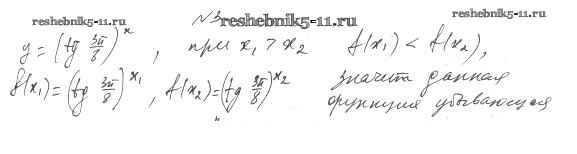 reshebnik5-11.ru
№3
reshebnik5-11.ru
reshebnik5-11.ru
y = (tg 3π/8)^x, при x₁ > x₂ f(x₁) < f(x₂),
f(x₁) = (tg 3π/8)^x₁, f(x₂) = (tg 3π/8)^x₂ значит данная
функция убывающая